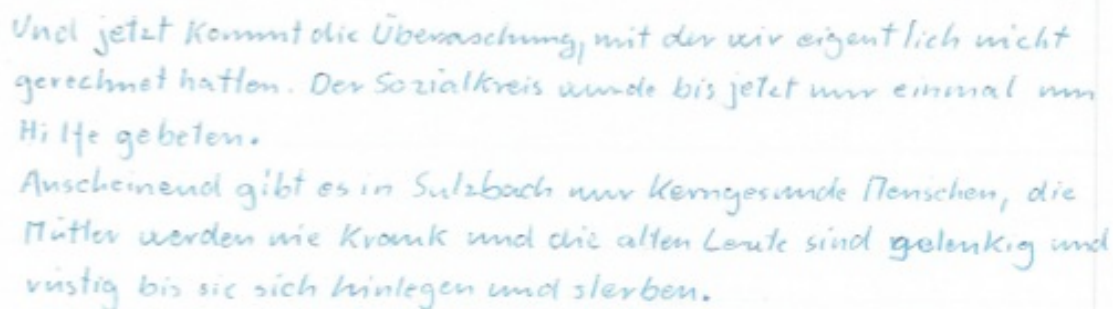 Und jetzt kommt die Überraschung, mit der wir eigentlich nicht
gerechnet hatten. Der Sozialkreis wurde bis jetzt nur einmal um
Hilfe gebeten.
Anscheinend gibt es in Sulzbach nur kerngesunde Menschen, die
Mütter werden nie krank und die alten Leute sind gelenkig und
rüstig bis sie sich hinlegen und sterben.